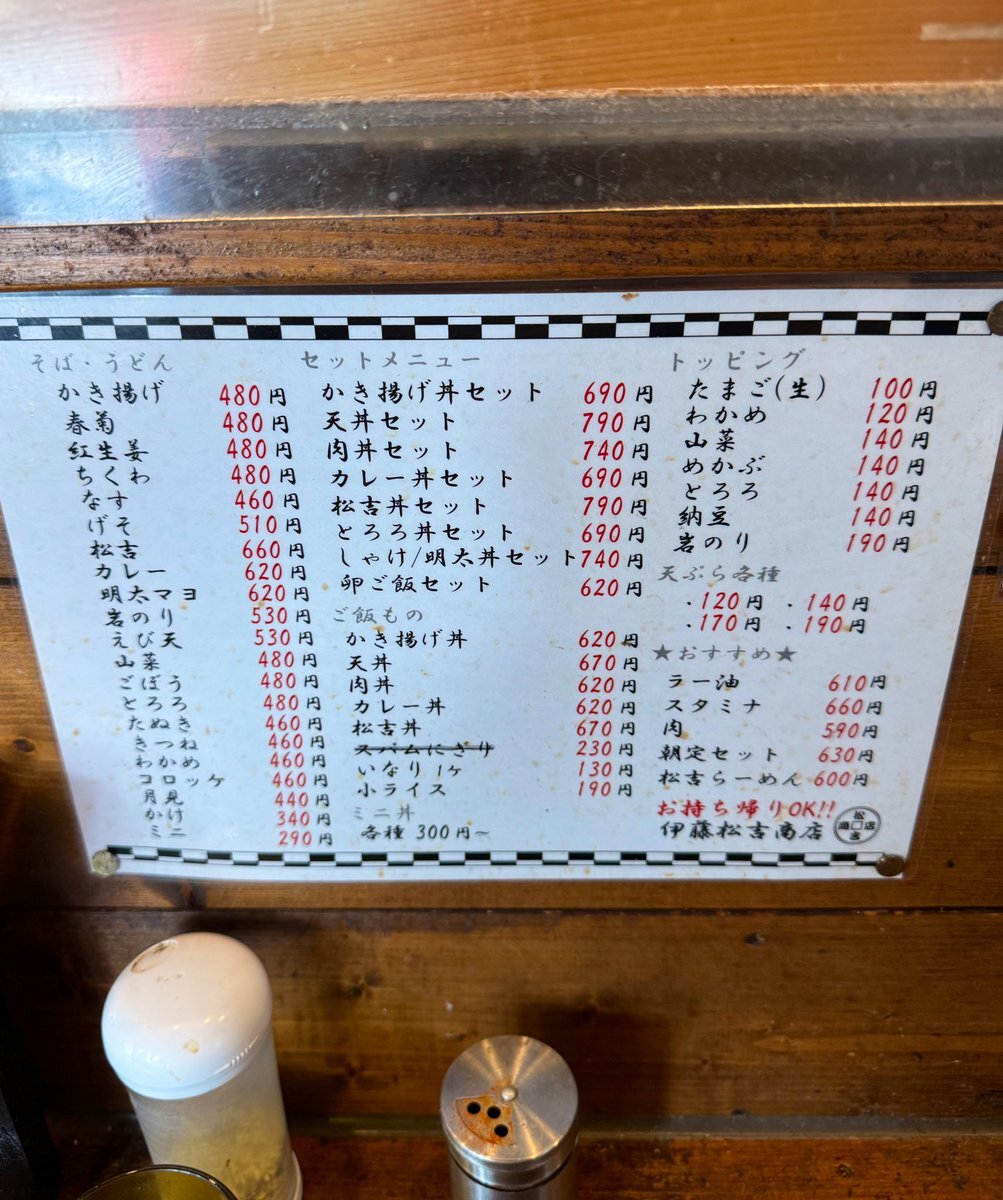 そば・うどん
かき揚げ 480円
春菊 480円
紅生姜 480円
ちくわ 480円
なす 460円
げそ 510円
松吉 660円
カレー 620円
明太マヨ 620円
岩のり 530円
えび天 530円
山菜 480円
ごぼう 480円
とろろ 480円
たぬき 460円
きつね 460円
わかめ 460円
コロッケ 460円
月見 440円
かけ 340円
ミニ 290円
セットメニュー
かき揚げ丼セット 690円
天丼セット 790円
肉丼セット 740円
カレー丼セット 690円
松吉丼セット 790円
とろろ丼セット 690円
しゃけ/明太丼セット 740円
卵ご飯セット 620円
ご飯もの
かき揚げ丼 620円
天丼 670円
肉丼 620円
カレー丼 620円
松吉丼 670円
スパムにぎり 230円
いなり 1ヶ 130円
小ライス 190円
ミニ丼
各種 300円~
トッピング
たまご(生) 100円
わかめ 120円
山菜 140円
めかぶ 140円
とろろ 140円
納豆 140円
岩のり 190円
天ぷら各種
・120円 ・140円
・170円 ・190円
★おすすめ★
ラー油 610円
スタミナ 660円
肉 590円
朝定セット 630円
松吉らーめん 600円
お持ち帰りOK!!
伊藤松吉商店
松
商口店
吉